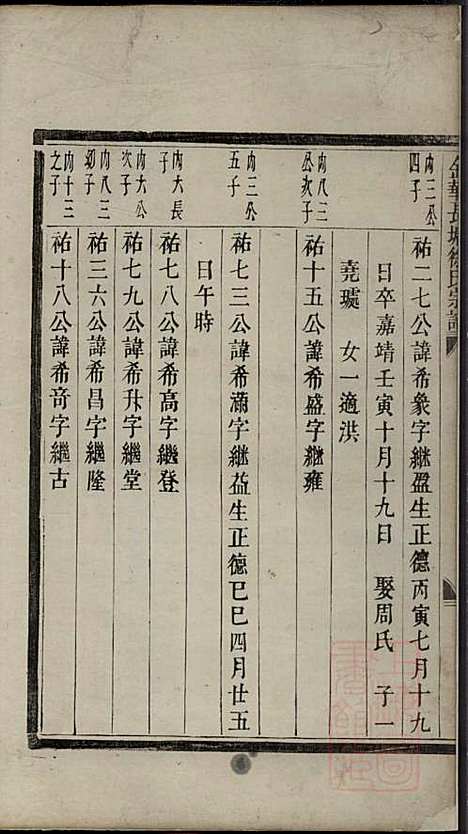 金華長塘徐氏宗譜
內三公
四子
祐二七公諱希象字繼盈生正德丙寅七月十九
日卒嘉靖壬寅十月十九日 娶周氏 子一
堯㻶 女一適洪
內八三
公次子
祐十五公諱希盛字継雍
內三公
五子
祐七三公諱希滿字継益生正德巳巳四月廿五
日午時
內大長
子
祐七八公諱希高字繼登
內大公
次子
祐七九公諱希升字繼堂
內八三
幼子
祐三六公諱希昌字繼隆
內十三
之子
祐十八公諱希音字繼古